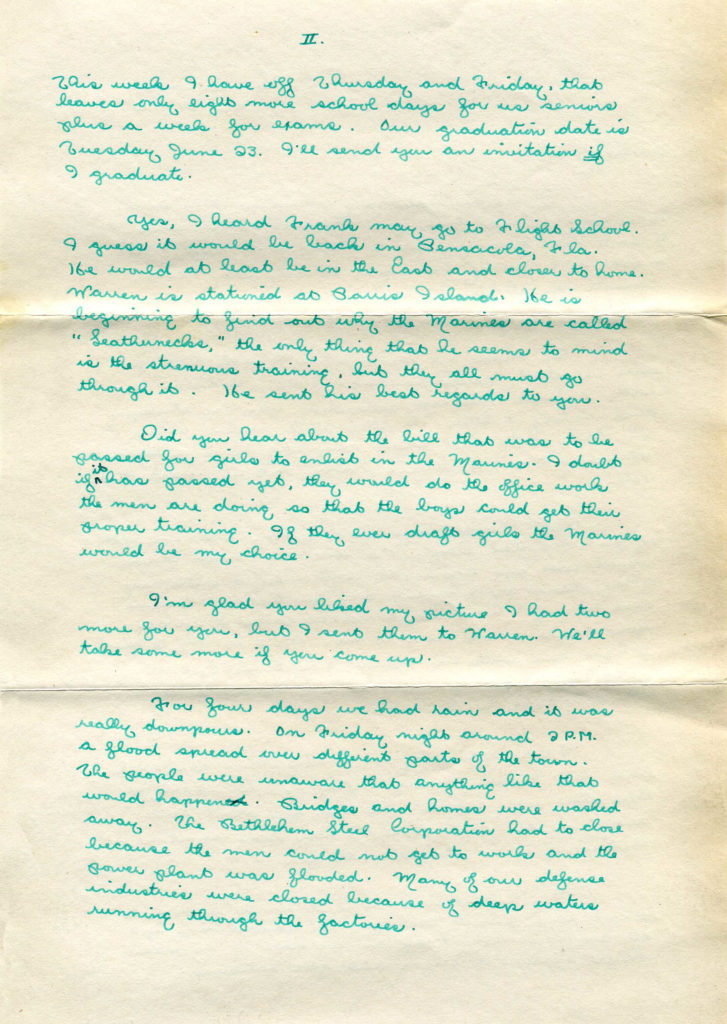 II.
This week I have off Thursday and Friday, that
leaves only eight more school days for us seniors
plus a week for exams. Our graduation date is
Tuesday June 23. I'll send you an invitation if
I graduate.
Yes, I heard Frank may go to Flight School.
I guess it would be back in Pensacola, Fla.
He would at least be in the East and closer to home.
Warren is stationed at Parris Island. He is
beginning to find out why the Marines are called
"Leathernecks," the only thing that he seems to mind
is the strenuous training, but they all must go
through it. He sent his best regards to you.
Did you hear about the bill that was to be
passed for girls to enlist in the Marines. I doubt
if it has passed yet, they would do the office work
the men are doing so that the boys could get their
proper training. If they ever draft girls the Marines
would be my choice.
I'm glad you liked my picture I had two
more for you, but I sent them to Warren. We'll
take some more if you come up.
For four days we had rain and it was
really downpours. On Friday night around 2 P.M.
a flood spread over different parts of the town.
The people were unaware that anything like that
would happen. Bridges and homes were washed
away. The Bethlehem Steel Corporation had to close
because the men could not get to work and the
power plant was flooded. Many of our defense
industries were closed because of deep waters
running through the factories.